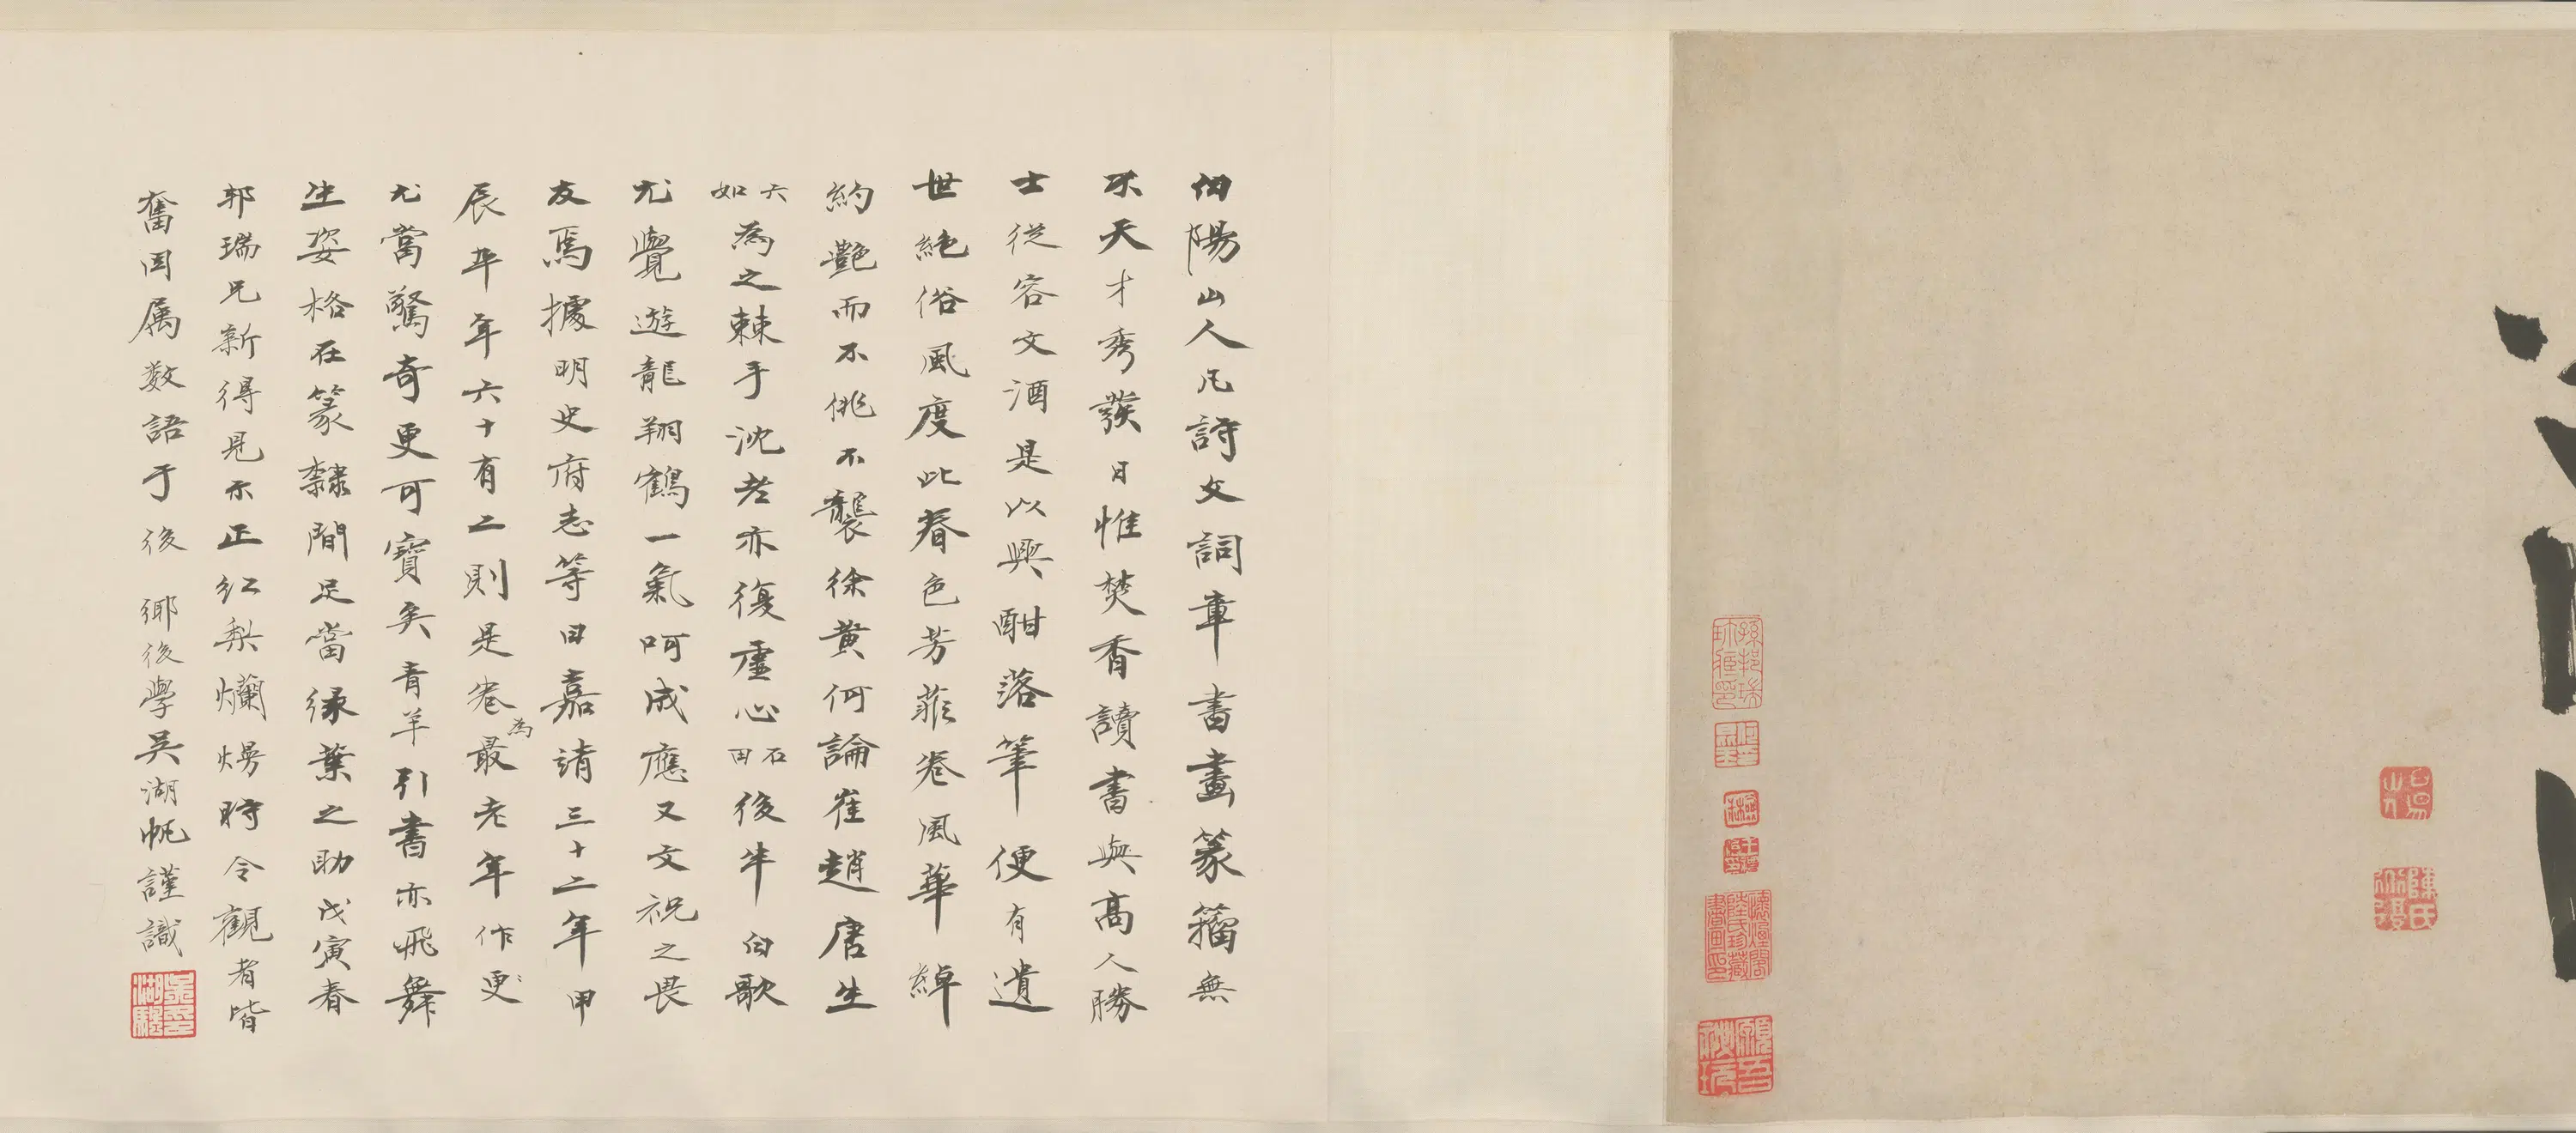 白陽山人凡詩文詞章書畫篆籀無
不天才秀發日惟焚香讀書與高人勝
士從容文酒是以興酣落筆便有遺
世絕俗風度此春色芳菲卷風華綽
約艷而不佻不襲徐黃何論崔趙唐生
六如為之棘手沈老亦復虛心石田後半白歌
尤覺遊龍翔鶴一氣呵成應又文祝之畏
友焉據明史府志等曰嘉靖三十二年甲
辰卒年六十有二則是卷為最老年作更
尤當驚奇更可寶矣青羊引書亦飛舞
生姿格在篆隸間足當綠葉之助戊寅春
邦瑞兄新得見示正紅梨爛熳時令觀者皆
奮因屬數語于後 鄉後學吳湖帆謹識
白陽山人
陳氏道復